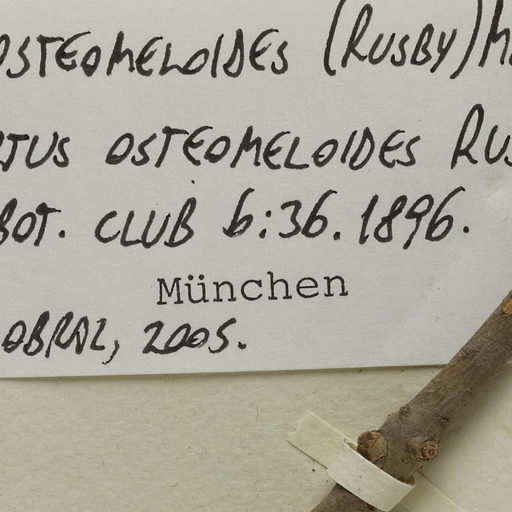 OSTEOMELOIDES (RUSBY) M
RTUS OSTEOMELOIDES RUS
BOT. CLUB 6:36. 1896.
München
OBRAL, 2005.